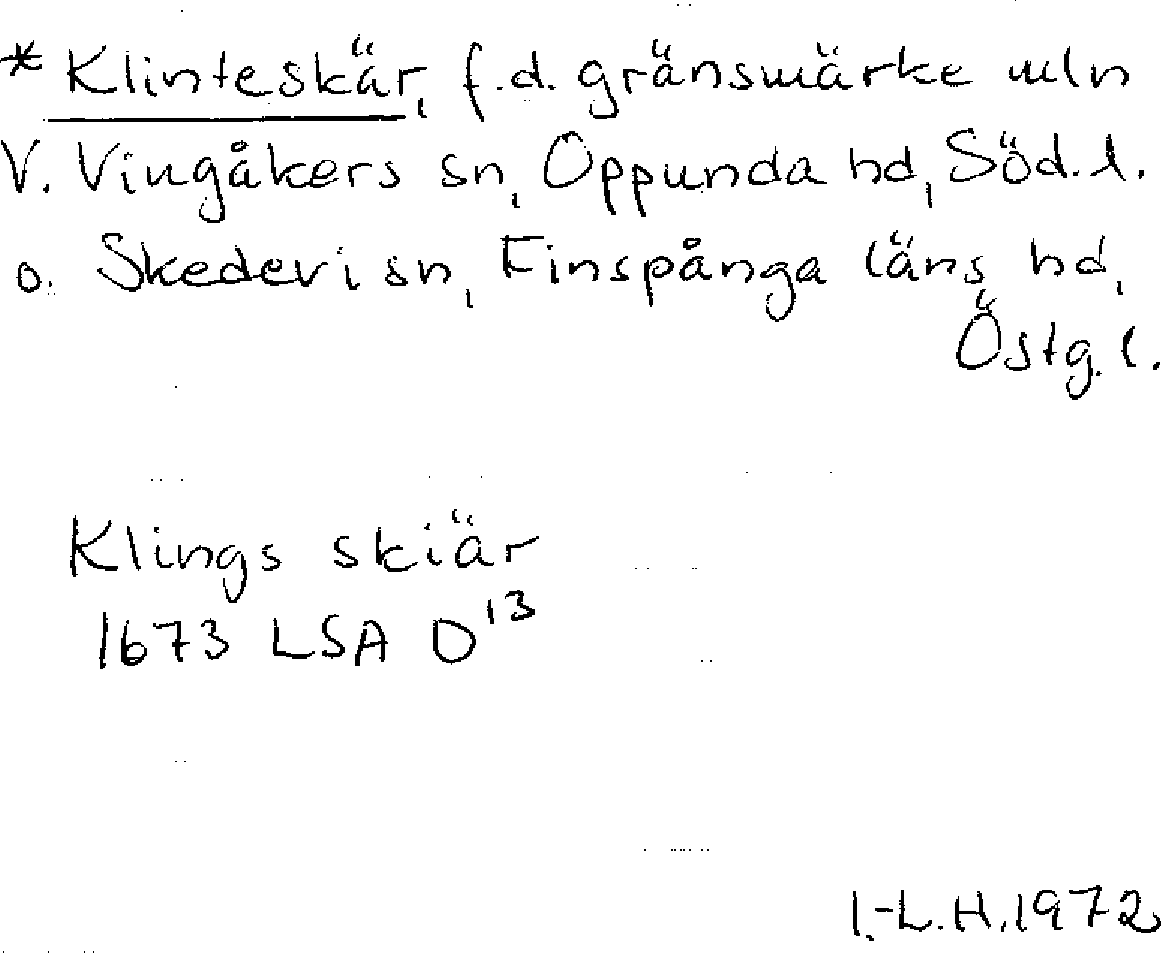 * Klinteskär, f.d. gränsmärke mln
V. Vingåkers sn, Oppunda hd, Söd.l.
o. Skedevi sn, Finspånga läns hd,
Östg.l.
Klings skiär
1673 LSA D13
I.-L.H.1972